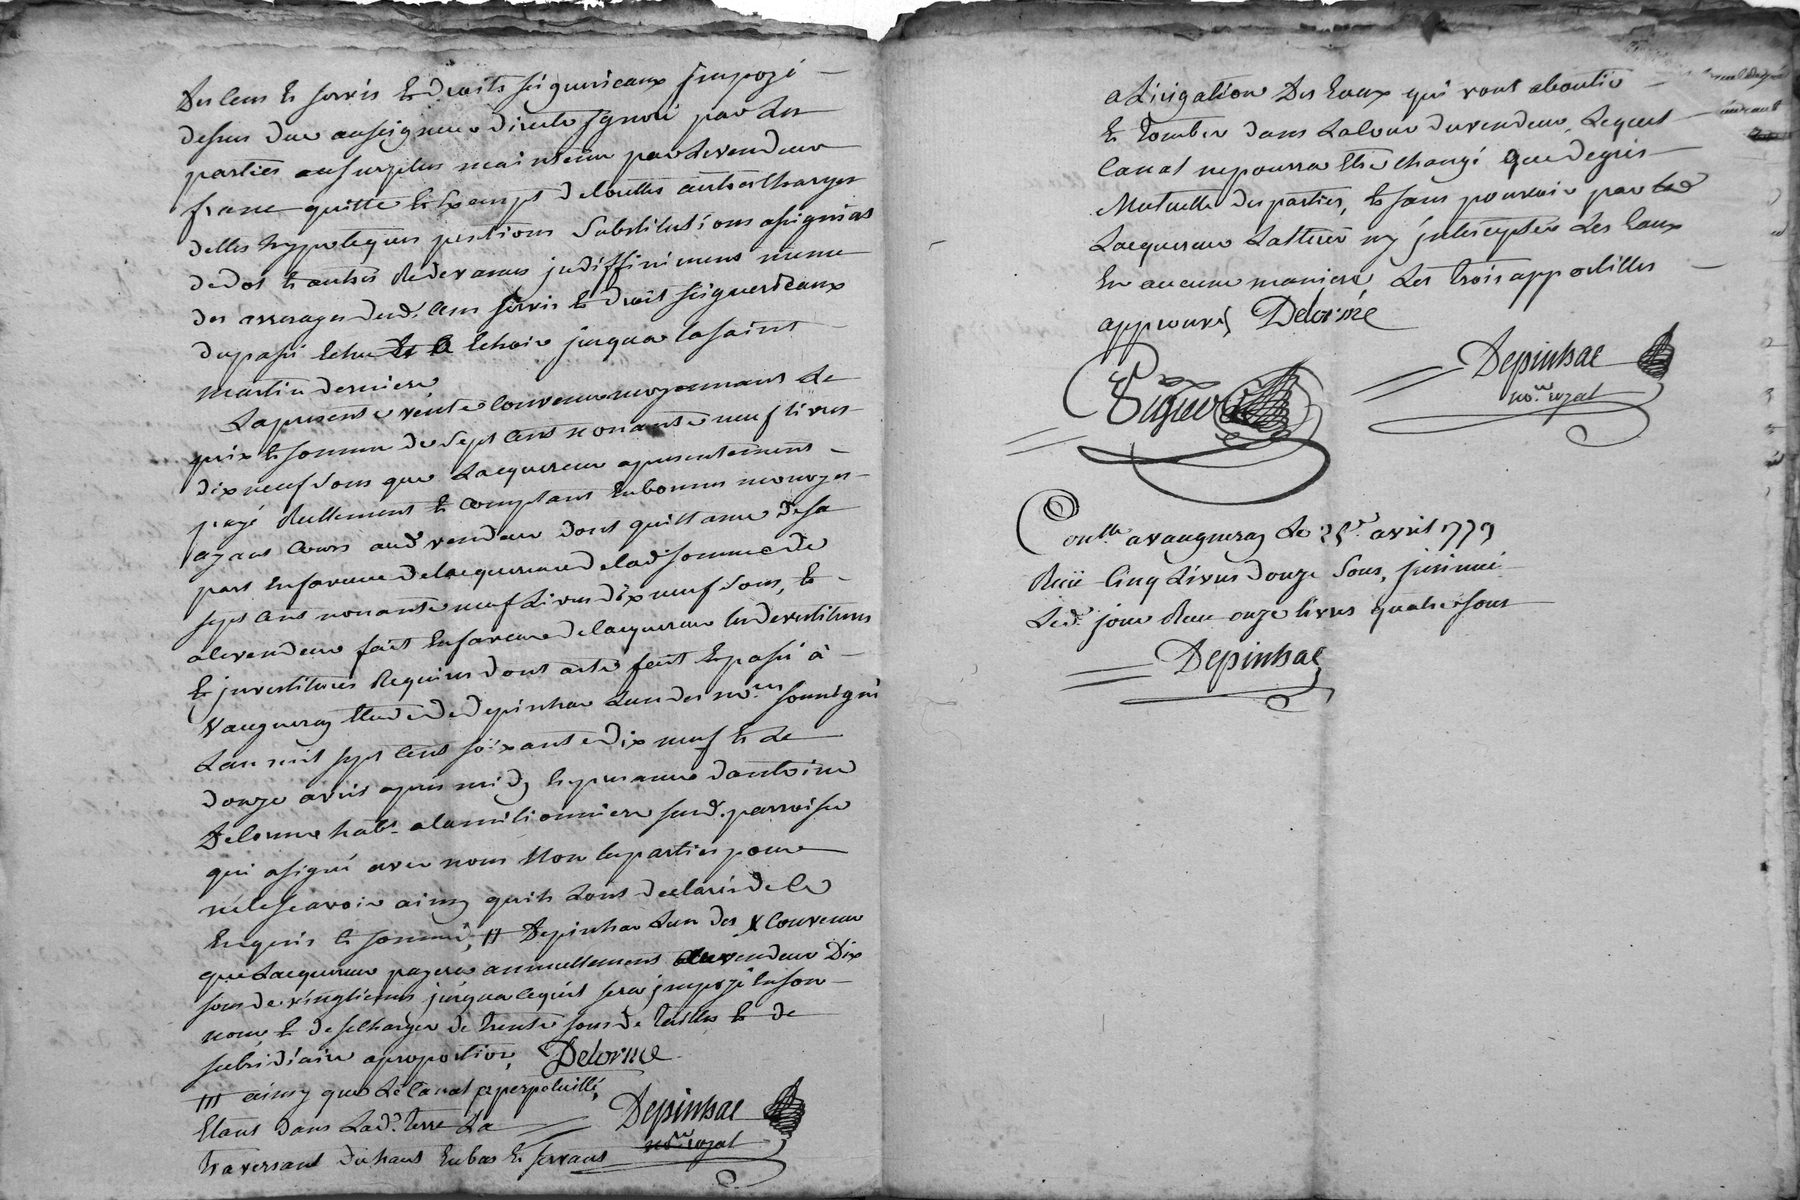 Des Cens & servis & droits seigneuriaux Imposé
dessus due au seigneur direct Ignoré par les
parties au surplus maintenüe par le vendeur
franc quitte & Exempt de touttes autres charges
dettes hypoteques pentions Substitutions assignias
de dot & autres Redevances judiffiniment même
des arrerages desd. Cens servis & droit seigneuriaux
du passé Echu & a Echoir jusqua la saint
martin derniere
La presente vente Convenue moyennant Le
prix & somme de sept Cens nonante neuf livres
dix neuf sous que Lacquereur a presentement
payé Reellement & Comptant En bonnes monoyes
ayant Cours aud. vendeur dont quittance de sa
part En faveur de lacquereur de lad. somme de
sept Cens nonante neuf Livres dix neuf sous, &
a le vendeur fait En faveur de lacquereur les devestitures
& jnvestitures Requises dont acte fait & passé à
Vaugneray Etude de depinhac L'un des no.res sousigné
L'an mil sept Cent soixante dix neuf & Le
douze avril après midy En presence d'antoine
Delorme hab.t a la milionniere sud. parroisse
qui a signé avec nous Non les parties pour
ne le sçavoir ainsy quils L'ont declaré de ce
Enquis & sommé, # Depinhac L'un des x Convenu
que Lacquereur payera annuellement au vendeur Dix
sous de vingtiemes jusqua cequ'il sera jmposé En son
nom, & de se charger de trente sous de tailles & de
subsidiaire a proportion, Delorme
### ainsy que Le Canal perpetuille,
Etant dans Lad.e terre La Depinhac
traversant du haut En bas & servant no.re royal
a Lirigation Des Eaux qui vont aboutir
& tomber dans La Cour du vendeur, Lequel
Canal ne pourra Etre changé que de gré
Mutuelle des parties, & sans pouvoir par
Lacquereur Latterer ny jntercepter Les Eaux
En aucune maniere Les trois appostilles
approuvés Delorme
Depinhac
no.re royal
Con.lle a vaugneray Le 25.e avril 1779
Reçu Cinq Livres douze Sous, jnsinué
Led.t jour Reçu onze livres quatre sous
Depinhac